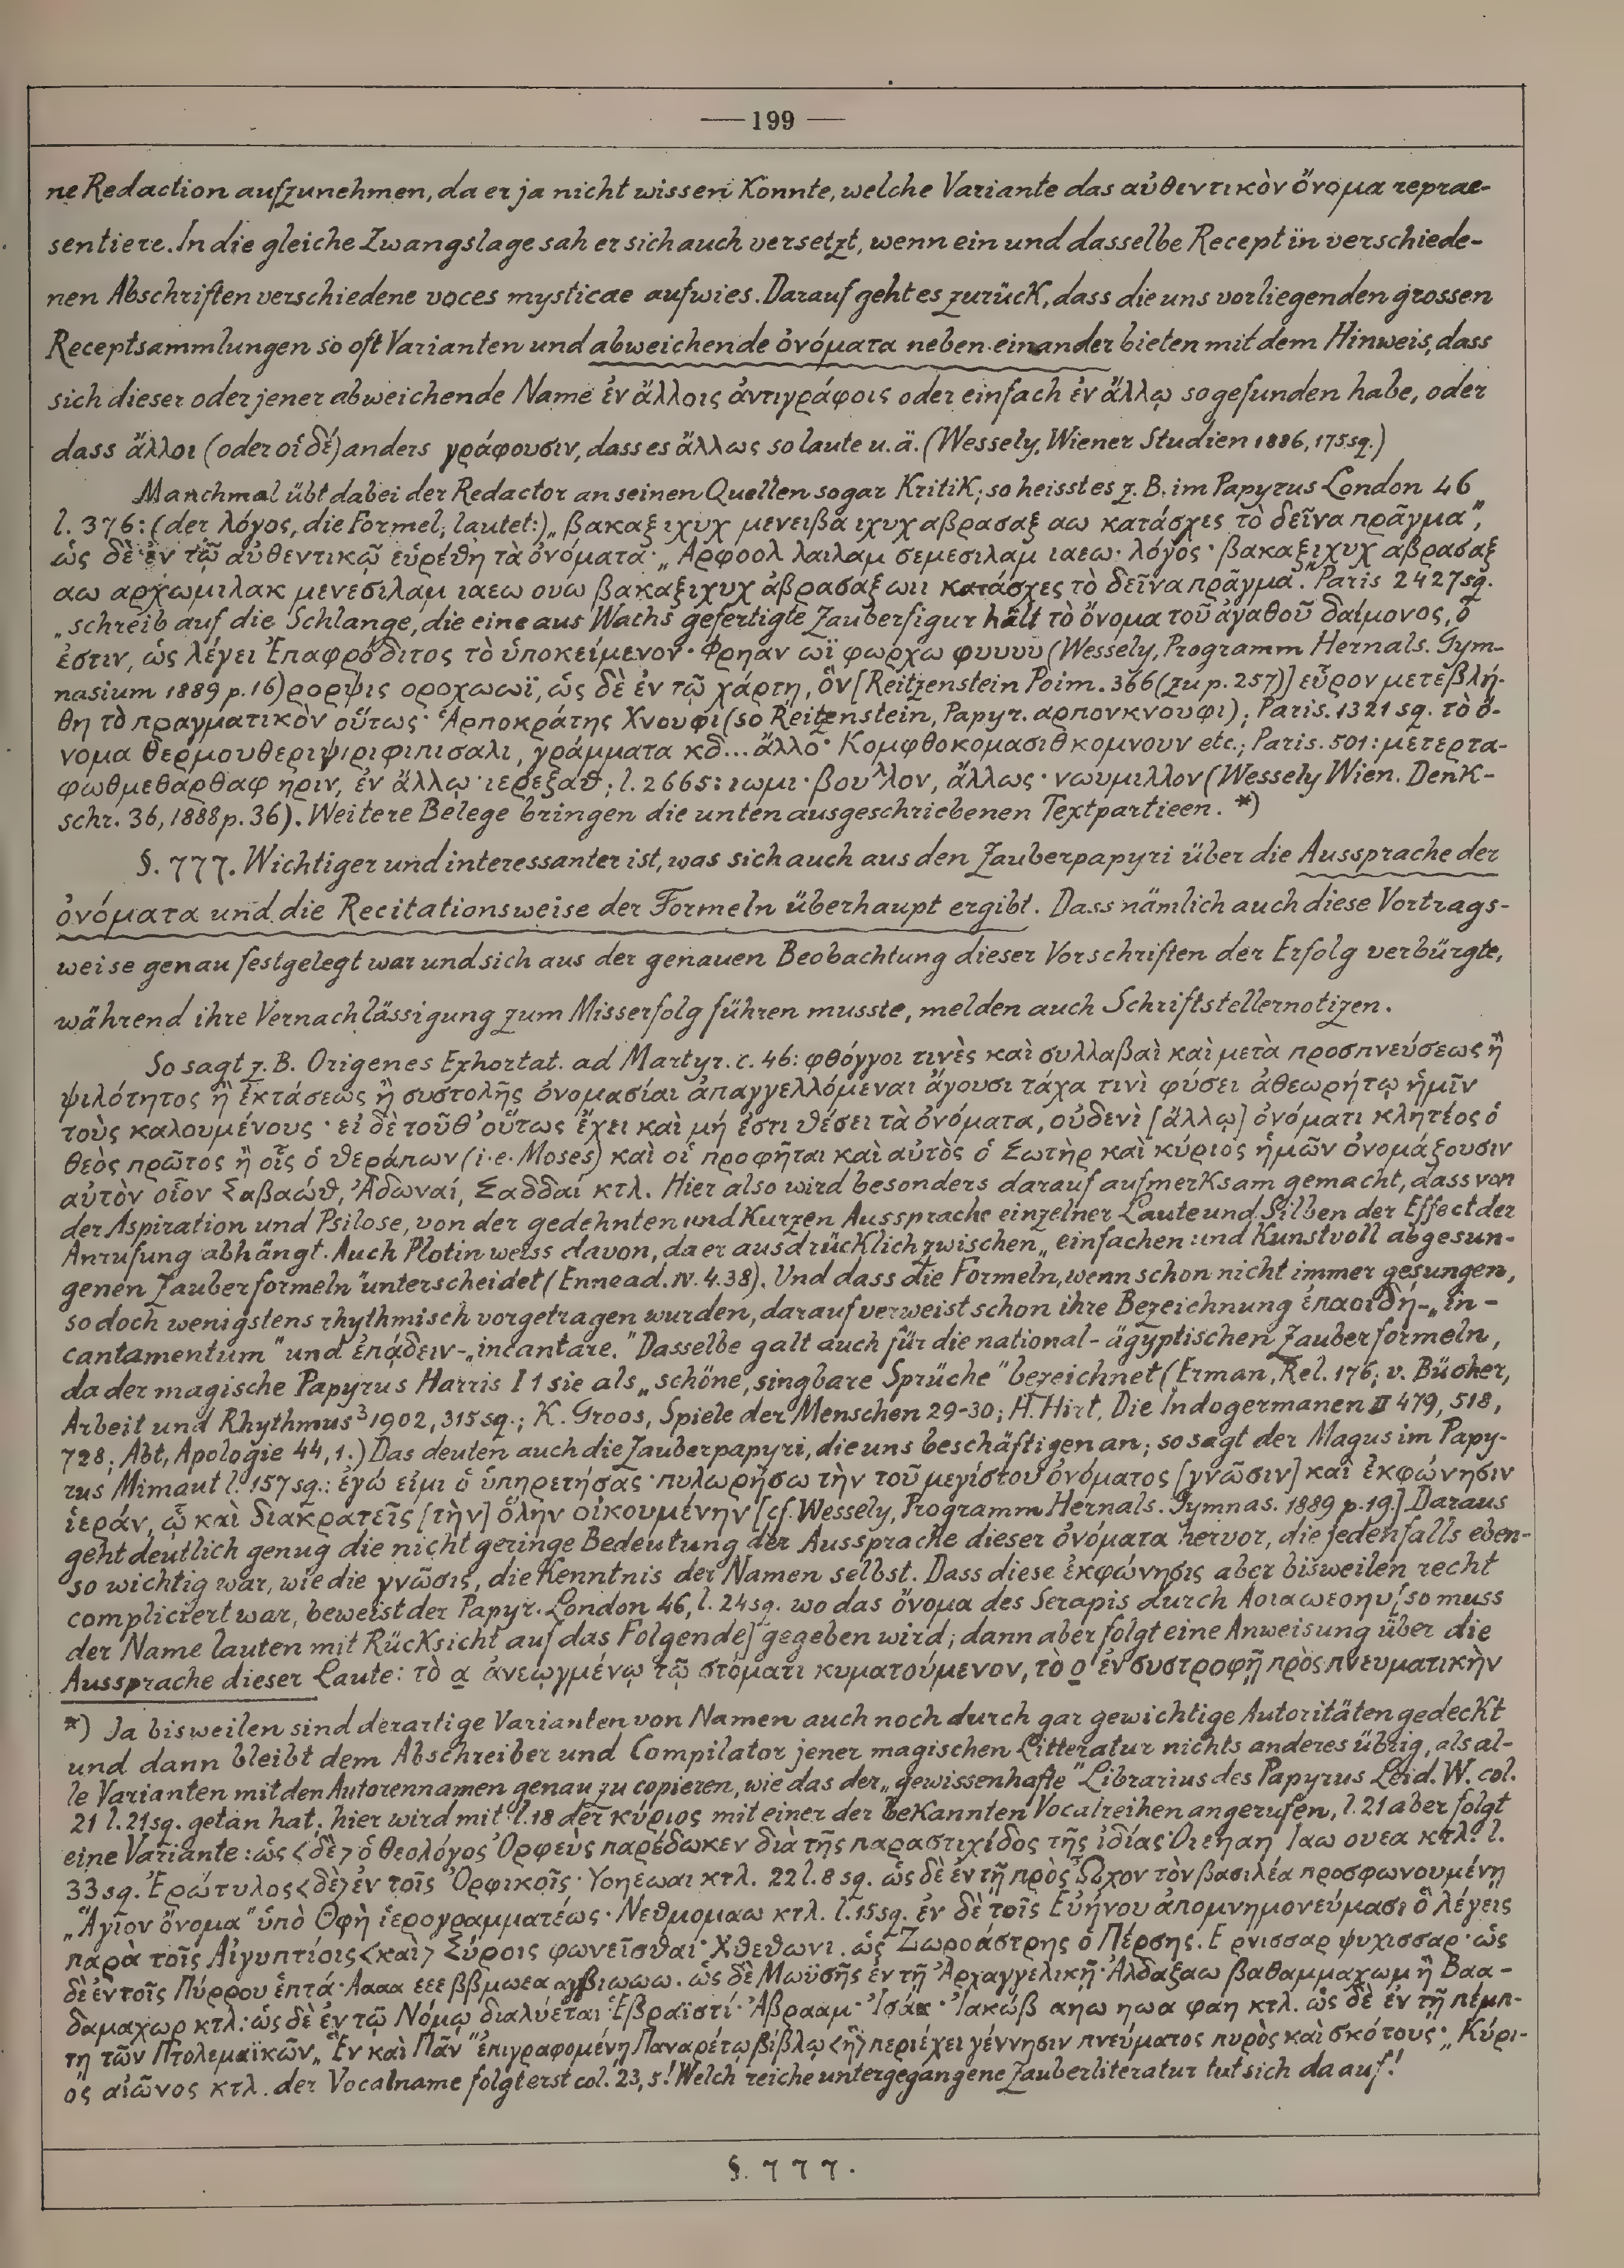 — 199 —
ne Redaction aufzunehmen, da er ja nicht wissen konnte, welche Variante das αὐθεντικὸν ὄνομα reprae-
sentiere. In die gleiche Zwangslage sah er sich auch versetzt, wenn ein und dasselbe Recept in verschiede-
nen Abschriften verschiedene voces mysticae aufwies. Darauf geht es zurück, dass die uns vorliegenden grossen
Receptsammlungen so oft Varianten und abweichende ὀνόματα neben einander bieten mit dem Hinweis, dass
sich dieser oder jener abweichende Name ἐν ἄλλοις ἀντιγράφοις oder einfach ἐν ἄλλῳ so gefunden habe, oder
dass ἄλλοι (oder οἱ δέ) anders γράφουσιν, dass es ἄλλως so laute u. ä. (Wessely, Wiener Studien 1886, 175 sq.)
Manchmal übt dabei der Redactor an seinen Quellen sogar Kritik; so heisst es z. B. im Papyrus London 46
l. 376: (der λόγος, die Formel, lautet:) „βακαξιχυχ μενειβα ιχυχ αβρασαξ αω κατάσχες τὸ δεῖνα πρᾶγμα",
ὡς δὲ ἐν τῷ αὐθεντικῷ εὑρέθη τὰ ὀνόματα· „Αρφοολ λαιλαμ σεμεσιλαμ ιαεω· λόγος· βακαξιχυχ αβρασαξ
αω αρχωμιλακ μενεσιλαμ ιαεω ουω βακαξιχυχ ἀβρασαξ ωιι κατάσχες τὸ δεῖνα πρᾶγμα". Paris 2427 sq.
„schreib auf die Schlange, die eine aus Wachs gefertigte Zauberfigur hält τὸ ὄνομα τοῦ ἀγαθοῦ δαίμονος, ὅ
ἐστιν, ὡς λέγει Ἐπαφρόδιτος τὸ ὑποκείμενον· Φρηαν ωϊ φωρχω φυυυυ (Wessely, Programm Hernals. Gym-
nasium 1889 p. 16) ρορψις οροχωωϊ, ὡς δὲ ἐν τῷ χάρτῃ, ὃν [Reitzenstein Poim. 366 (zu p. 257)] εὗρον μετεβλή-
θη τὸ πραγματικὸν οὕτως· Ἁρποκράτης Χνουφι (so Reitzenstein, Papyr. αρπονκνουφι); Paris. 1321 sq. τὸ ὄ-
νομα θερμουθεριψιριφιπισαλι, γράμματα κδ... ἄλλο· Κομφθοκομασιθ κομνουν etc.; Paris. 501: μετερτα-
φωθμεθαρθαφ ηριν, ἐν ἄλλῳ· ιερεξαθ; l. 2665: ιωμι· βουλλον, ἄλλως· νωυμιλλον (Wessely Wien. Denk-
schr. 36, 1888 p. 36). Weitere Belege bringen die unten ausgeschriebenen Textpartieen. *)
§. 777. Wichtiger und interessanter ist, was sich auch aus den Zauberpapyri über die Aussprache der
ὀνόματα und die Recitationsweise der Formeln überhaupt ergibt. Dass nämlich auch diese Vortrags-
weise genau festgelegt war und sich aus der genauen Beobachtung dieser Vorschriften der Erfolg verbürgte,
während ihre Vernachlässigung zum Misserfolg führen musste, melden auch Schriftstellernotizen.
So sagt z. B. Origenes Exhortat. ad Martyr. c. 46: φθόγγοι τινὲς καὶ συλλαβαὶ καὶ μετὰ προσπνεύσεως ἢ
ψιλότητος ἢ ἐκτάσεως ἢ συστολῆς ὀνομασίαι ἀπαγγελλόμεναι ἄγουσι τάχα τινὶ φύσει ἀθεωρήτῳ ἡμῖν
τοὺς καλουμένους· εἰ δὲ τοῦθ' οὕτως ἔχει καὶ μή ἐστι θέσει τὰ ὀνόματα, οὐδενὶ [ἄλλῳ] ὀνόματι κλητέος ὁ
θεὸς πρῶτος ἢ οἷς ὁ θεράπων (i. e. Moses) καὶ οἱ προφῆται καὶ αὐτὸς ὁ Σωτὴρ καὶ κύριος ἡμῶν ὀνομάζουσιν
αὐτὸν οἷον Σαβαώθ, Ἀδωναί, Σαδδαί κτλ. Hier also wird besonders darauf aufmerksam gemacht, dass von
der Aspiration und Psilose, von der gedehnten und kurzen Aussprache einzelner Laute und Silben der Effect der
Anrufung abhängt. Auch Plotin weiss davon, da er ausdrücklich zwischen „einfachen und kunstvoll abgesun-
genen Zauberformeln" unterscheidet (Ennead. IV. 4. 38). Und dass die Formeln, wenn schon nicht immer gesungen,
so doch wenigstens rhythmisch vorgetragen wurden, darauf verweist schon ihre Bezeichnung ἐπαοιδή - „in-
cantamentum" und ἐπᾴδειν - „incantare." Dasselbe galt auch für die national-ägyptischen Zauberformeln,
da der magische Papyrus Harris I 1 sie als „schöne, singbare Sprüche" bezeichnet (Erman, Rel. 176; v. Bücher,
Arbeit und Rhythmus³ 1902, 315 sq.; K. Groos, Spiele der Menschen 29-30; H. Hirt, Die Indogermanen II 479, 518,
728; Abt, Apologie 44, 1.) Das deuten auch die Zauberpapyri, die uns beschäftigen an; so sagt der Magus im Papy-
rus Mimaut l. 157 sq.: ἐγώ εἰμι ὁ ὑπηρετήσας· πυλωρήσω τὴν τοῦ μεγίστου ὀνόματος [γνῶσιν] καὶ ἐκφώνησιν
ἱεράν, ᾧ καὶ διακρατεῖς [τὴν] ὅλην οἰκουμένην [cf. Wessely, Programm Hernals. Gymnas. 1889 p. 19.] Daraus
geht deutlich genug die nicht geringe Bedeutung der Aussprache dieser ὀνόματα hervor, die jedenfalls eben-
so wichtig war, wie die γνῶσις, die Kenntnis der Namen selbst. Dass diese ἐκφώνησις aber bisweilen recht
compliciert war, beweist der Papyr. London 46, l. 24 sq. wo das ὄνομα des Serapis durch Αοιαωεοηυ [so muss
der Name lauten mit Rücksicht auf das Folgende] gegeben wird; dann aber folgt eine Anweisung über die
Aussprache dieser Laute: τὸ α ἀνεῳγμένῳ τῷ στόματι κυματούμενον, τὸ ο ἐν συστροφῇ πρὸς πνευματικὴν
*) Ja bisweilen sind derartige Varianten von Namen auch noch durch gar gewichtige Autoritäten gedeckt
und dann bleibt dem Abschreiber und Compilator jener magischen Litteratur nichts anderes übrig, als al-
le Varianten mit den Autorennamen genau zu copieren, wie das der „gewissenhafte" Librarius des Papyrus Leid. W. col.
21 l. 21 sq. getan hat; hier wird mit l. 18 der κύριος mit einer der bekannten Vocalreihen angerufen, l. 21 aber folgt
eine Variante: ὡς <δὲ> ὁ θεολόγος Ὀρφεὺς παρέδωκεν διὰ τῆς παραστιχίδος τῆς ἰδίας· Οιεηαη Ιαω ουεα κτλ. l.
33 sq. Ἐρώτυλος <δὲ> ἐν τοῖς Ὀρφικοῖς· Υοηεωαι κτλ. 22 l. 8 sq. ὡς δὲ ἐν τῇ πρὸς Ὦχον τὸν βασιλέα προσφωνουμένῃ
„Ἅγιον ὄνομα" ὑπὸ Θφὴ ἱερογραμματέως· Νεθμομαω κτλ. l. 15 sq. ἐν δὲ τοῖς Εὐήνου ἀπομνημονεύμασι ὃ λέγεις
παρὰ τοῖς Αἰγυπτίοις <καὶ> Σύροις φωνεῖσθαι· Χθεθωνι. ὡς Ζωροάστρης ὁ Πέρσης. Ε ρνισσαρ ψυχισσαρ· ὡς
δὲ ἐν τοῖς Πύρρου ἑπτά· Αααα εεε ββμωεα αγβιωωω. ὡς δὲ Μωϋσῆς ἐν τῇ Ἀρχαγγελικῇ· Ἀλδαξαω βαθαμμαχωμ ἢ Βαα-
δαμαχωρ κτλ: ὡς δὲ ἐν τῷ Νόμῳ διαλύεται Ἑβραϊστί· Ἀβρααμ· Ἰσάκ· Ἰακώβ αηω ηωα φαη κτλ. ὡς δὲ ἐν τῇ πέμπ-
τῃ τῶν Πτολεμαϊκῶν „Ἓν καὶ Πᾶν" ἐπιγραφομένῃ Παναρέτῳ βίβλῳ <ἣ> περιέχει γέννησιν πνεύματος πυρὸς καὶ σκότους· „Κύρι-
ος αἰῶνος κτλ. der Vocalname folgt erst col. 23, 5! Welch reiche untergegangene Zauberliteratur tut sich da auf!
§. 777.